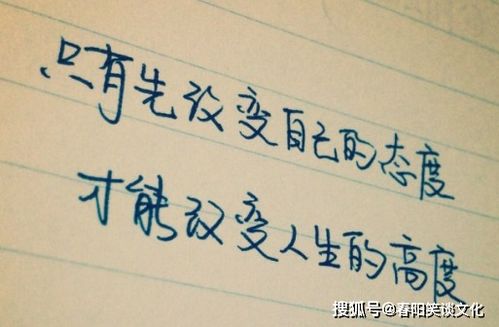 只有先改变自己的态度
才能改变人生的高度
搜狐号@春阳笑谈文化